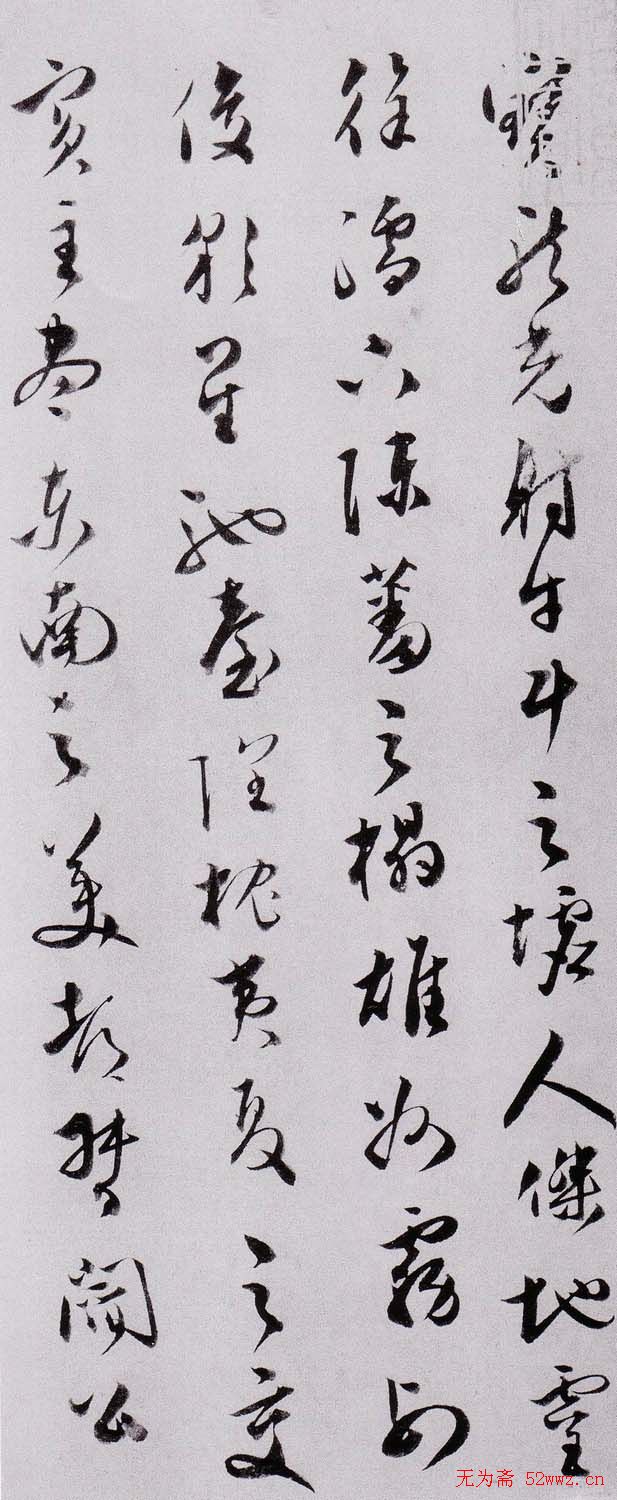 寶龍光射牛斗之墟人傑地靈
徐孺下陳蕃之榻雄州霧列
俊彩星馳臺隍枕夷夏之交
賓主盡東南之美都督閻公
无为斋 52wwz.cn